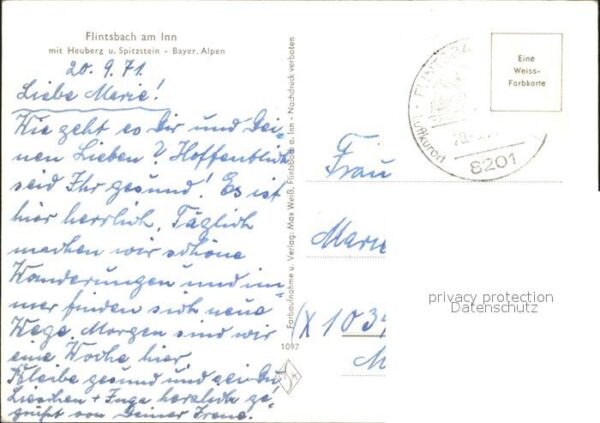 Flintsbach am Inn
mit Heuberg u. Spitzstein - Bayer. Alpen
20. 9. 71.
Liebe Marie!
Wie geht es Dir und Dei-
nen Lieben? Hoffentlich
seid Ihr gesund! Es ist
hier herrlich. Täglich
machen wir schöne
Wanderungen und im-
mer finden sich neue
Wege. Morgen sind wir
eine Woche hier.
Bleibe gesund und sei Du
Lieschen + Inge herzlich ge-
grüßt von Deiner Irene.
Farbaufnahme u. Verlag: Max Weiß, Flintsbach a. Inn - Nachdruck verboten
1097
Luftkurort
8201
Eine
Weiss-
Farbkarte
Frau
Marie
(X 103
M
privacy protection
Datenschutz